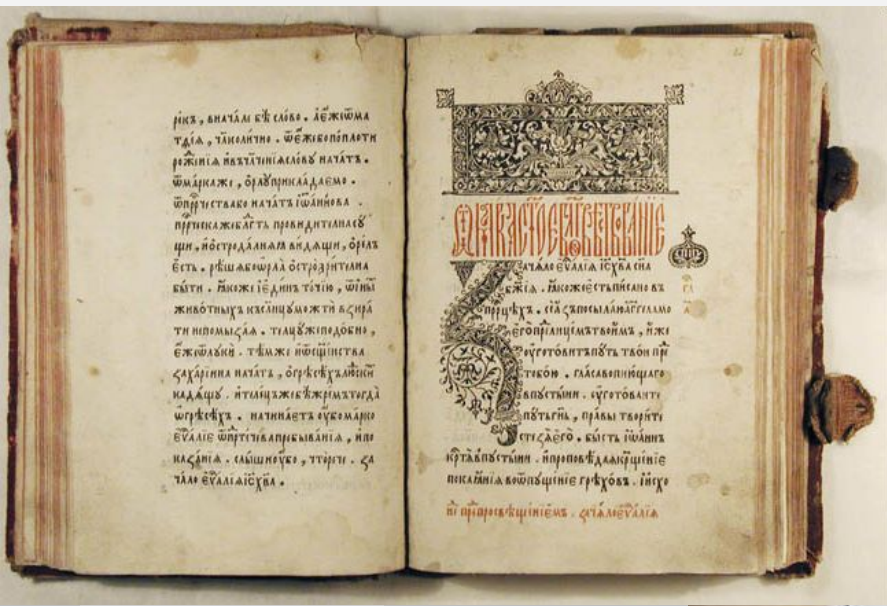 рі́къ, внача́лѣ бѣ̀ сло́во. а҆є́жеѿма
тѳі́а, ча́колично. ѿє́жебопоплоти
роже́нїѧ и҆въчл҃че́нїѧ сло́вꙋ нача́тъ.
ѿма́ркаже, ѻ҆рлꙋ̀прикла́даемо.
ѿпрⷪ҇ро́чествабо нача́тъ і҆ѡа́нн́ова.
прⷪ҇ро́ческажебл҃гⷣть провиди́телнасꙋ́
щи, и҆ѻ҆строда́лняꙗ ви́дѧщи, ѻ҆ре́лъ
є҆́сть. рѣ́шабоѻ҆рла̀ ѻ҆строзри́телна
бы́ти. ꙗ҆́коже і҆є҆ди́нъ то́чїю, ѿи҆ны́
живо́тныхъ къ сл҃нцꙋмо́жти взира́
ти непомыза́ꙗ. телцꙋ́жеподо́бно,
є҆́жеѿлꙋкѝ. тѣ́мже и҆ѿсщ҃е́нства
заха́риина нача́тъ, ѻ҆грѣсѣ́хълю́скⷯ
кадѧ́щꙋ. и҆теле́цъжебѣ̀жре́мътогда̀
ѡ҆грѣсѣ́хъ. начина́етъ ᲂу҆́бома́рко
є҆ѵⷢ҇а́лїе ѿпрⷣте́чевапребыва́нїѧ, и҆по
каза́нїѧ. слы́шиᲂу҆бо, что̀рече. за
ча́ло є҆ѵⷢ҇а́лїѧ і҆с҃х҃ва.
ѿ ма́рка ст҃о́е бл҃говѣствова́нїе
Зача́ло є҆ѵⷢ҇а́лїѧ і҆с҃х҃ва сн҃а
бж҃їѧ. ꙗ҆́коже є҆́сть пи́сано въ
прⷪ҇рцѣхъ. сѐ а҆́зъ посыла́ю а҆́гг҃ла мо
его̀ пре́длице́мъ твои́мъ, и҆́же
ᲂу҆гото́витъ пꙋ́ть тво́и пре́
тобо́ю. гла́съ вопию́щаго
впꙋсты́ни. ᲂу҆гото́вайте
пꙋ́ть гн҃ь, пра́вы твори́те
стезѧ̀ є҆гѡ̀. бы́сть і҆ѡа́ннъ
кр҃тѧ̀ впꙋсты́ни. и҆проповѣ́даѧ кр҃ще́нїе
покаѧ́нїѧ воѿпꙋще́нїе грѣхо́въ. и҆и҆схо
не́ пре́ просвѣще́нїемъ. зача́ло є҆ѵⷢ҇а́лїѧ